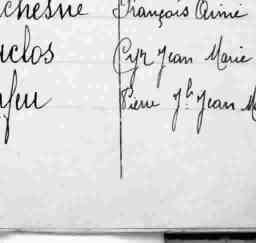 chesne François Aimé
uclos Cyr Jean Marie
feu Pierre Jh Jean M